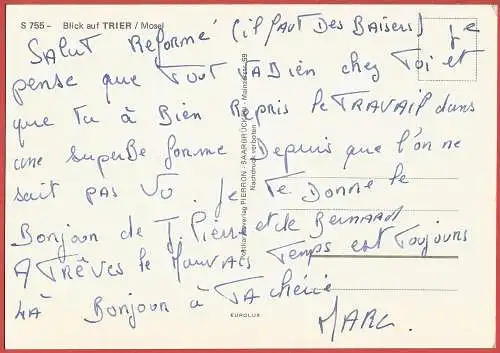 S 755 – Blick auf TRIER / Mosel
Salut Reformé (il Faut Des Baisers) je
pense que Tout VaBien chez Toi et
que Tu à Bien Repris le TRAVAIL dans
une superbe forme Depuis que l'on ne
sait pas Vu. Je Te Donne le
Bonjour de J. Pierre et de Bernard
A Trèves le Mauvais Temps est Toujours
LÀ Bonjour à Ta chérie
MARC.
PIERRON - SAARBRÜCKEN - Mainzerstr. 59
Nachdruck verboten
EUROLUX